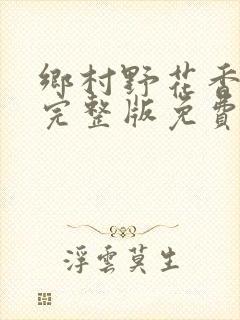 鄉村野花香
完整版免費
浮雲莫生